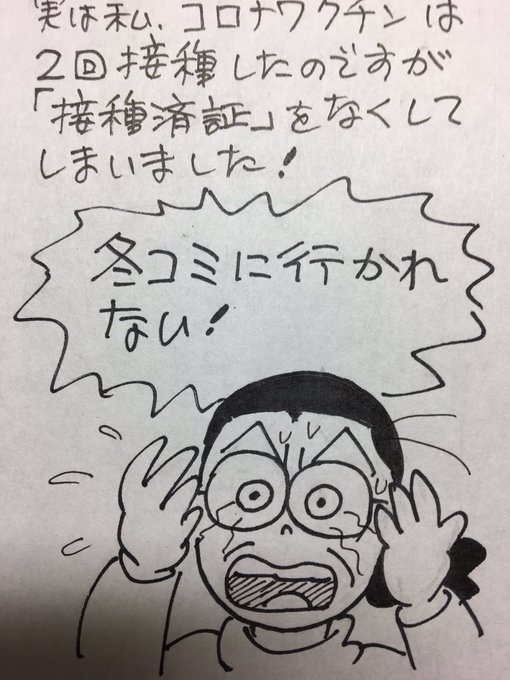 実は私、コロナワクチンは
2回接種したのですが
「接種済証」をなくして
しまいました!
冬コミに行かれ
ない!